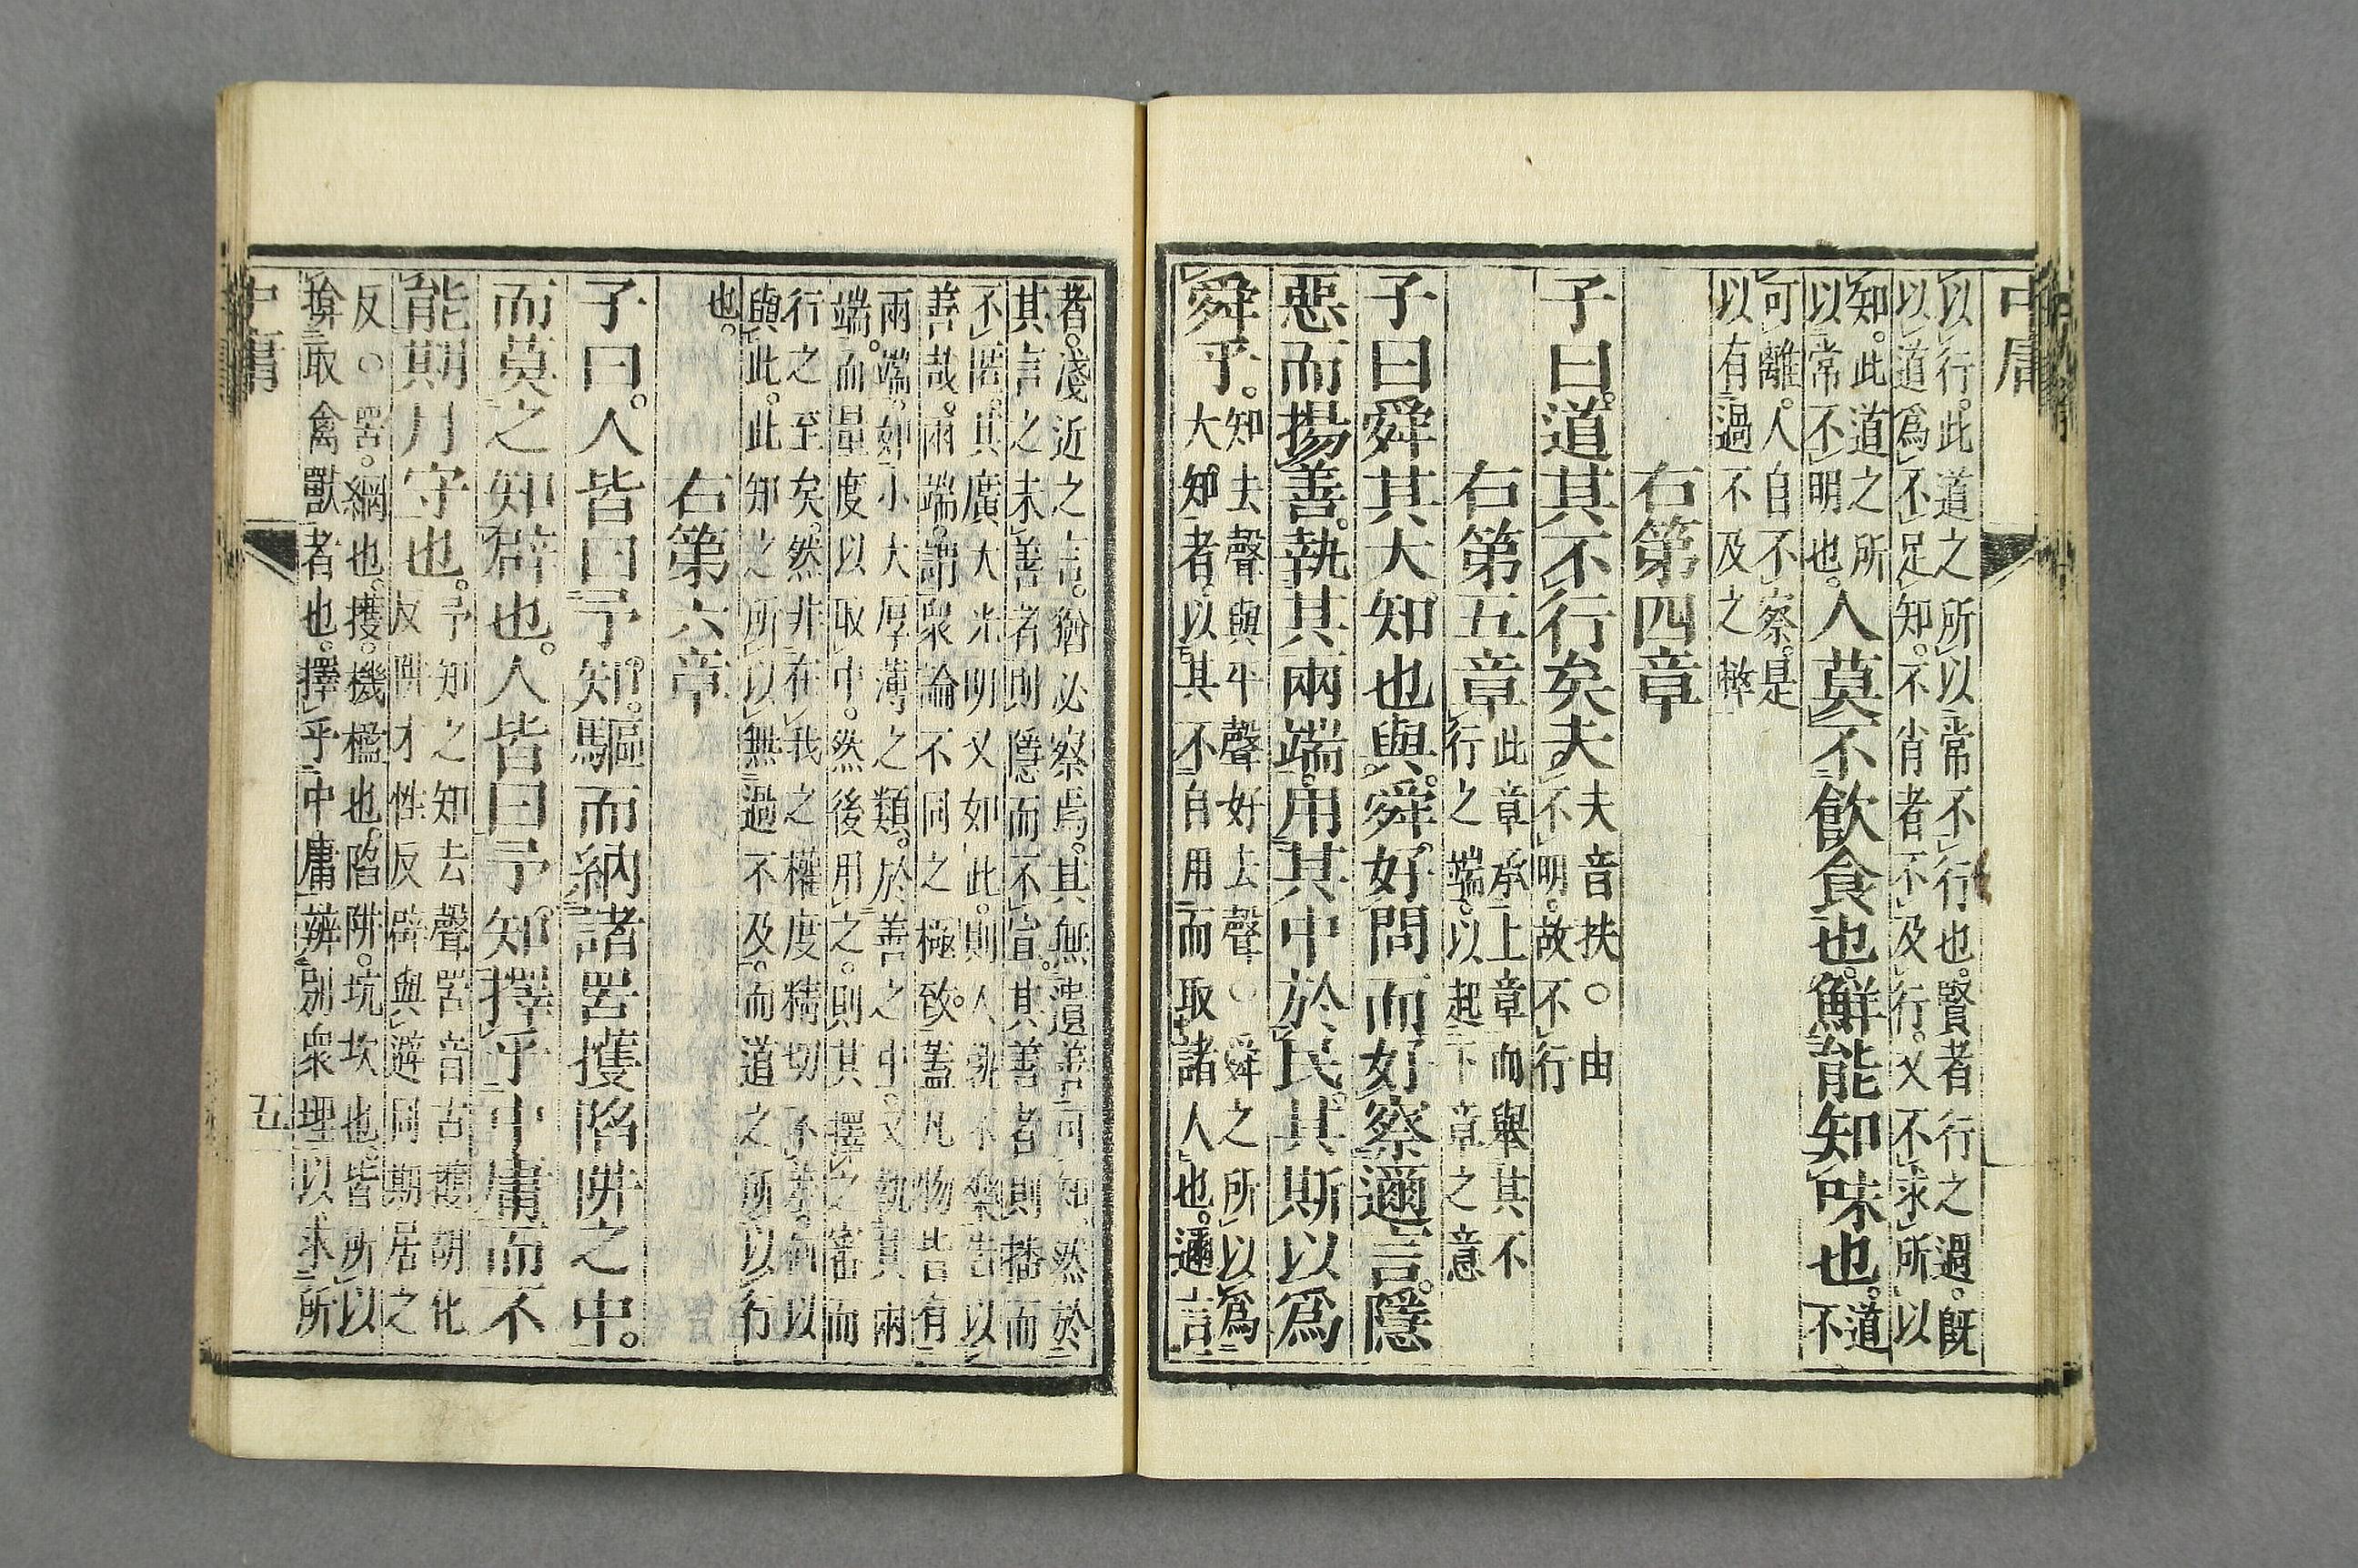 中庸
以行。此道之所以常不行也。賢者行之過。既
以道爲不足知。不肖者不及行。又不求所以
知。此道之所
以常不明也。
人莫不飲食也。鮮能知味也。
道
不
可離。人自不察。是
以有過不及之弊
右第四章
子曰。道其不行矣夫。
夫音扶。○由
不明。故不行
右第五章
此章承上章而舉其不
行之端。以起下章之意
子曰舜其大知也與。舜。好問而好察邇言。隱
惡而揚善。執其兩端。用其中於民。其斯以爲
舜乎。
知去聲與平聲好去聲○舜之所以爲
大知者。以其不自用而取諸人也。邇言
者。淺近之言。猶必察焉。其無遺善可知。然於
其言之未善者則隱而不宣。其善者則播而
不匿。其廣大光明又如此。則人孰不樂告以
善哉。兩端。謂衆論不同之極致。蓋凡物皆有
兩端。如小大厚薄之類。於善之中。又執其兩
端。而量度以取中。然後用之。則其擇之審而
行之至矣。然非在我之權度精切不差。何以
與此。此知之所以無過不及。而道之所以行
也。
右第六章
子曰。人皆曰予知。驅而納諸罟擭陷阱之中。
而莫之知辟也。人皆曰予。知擇乎中庸而不
能期月守也。
予知之知去聲罟音古擭胡化
反阱才性反辟與避同期居之
反○罟。網也。擭。機檻也。陷阱。坑坎也。皆所以
揜取禽獸者也。擇乎中庸辨別衆理以求所
中庸
五